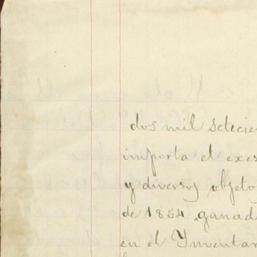 dos mil setecie
importa el exes
y diversos objeto
de 1884 ganad
en el Ynventar